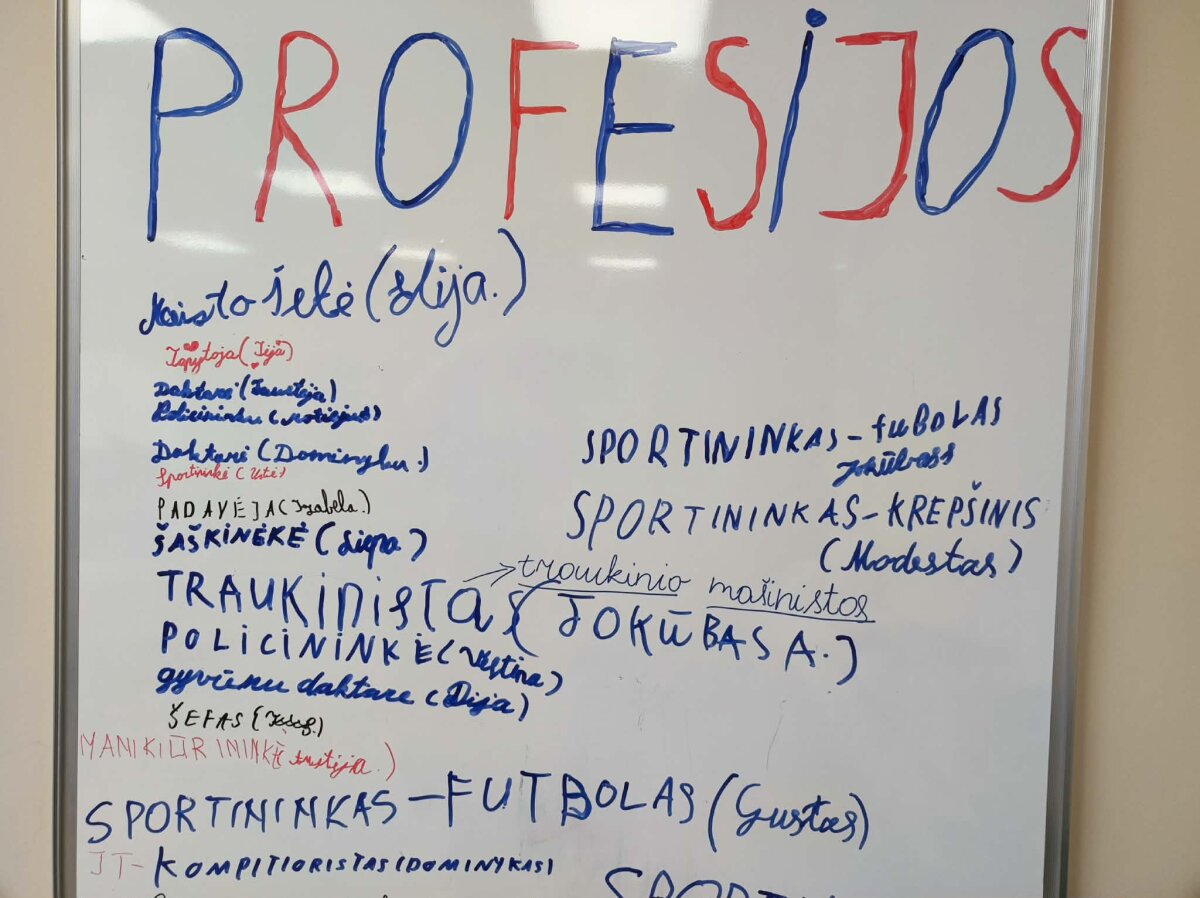 PROFESİJOS
Maisto šefė (Elija.)
Tapytoja (Tėja)
Daktarė (Faustėja)
Policininku (Motiejus)
Daktarė (Dominyka.)
Sportininkė (Ustė)
PADAVĖJA (Izabela.)
ŠAŠKINĖKĖ (Liepa)
TRAUKINISTAS (JOKŪBAS A.)
traukinio mašinistas
POLICININKĖ (Vestina)
gyvūnu daktare (Dija)
ŠEFAS
MANIKIŪRININKĖ
SPORTININKAS - FUTBOLAS (Gustas)
IT - KOMPITIORISTAS (DOMINYKAS)
SPORTININKAS - fuBOLAS
Jokūbass
SPORTININKAS - KREPŠINIS
(Modestas)